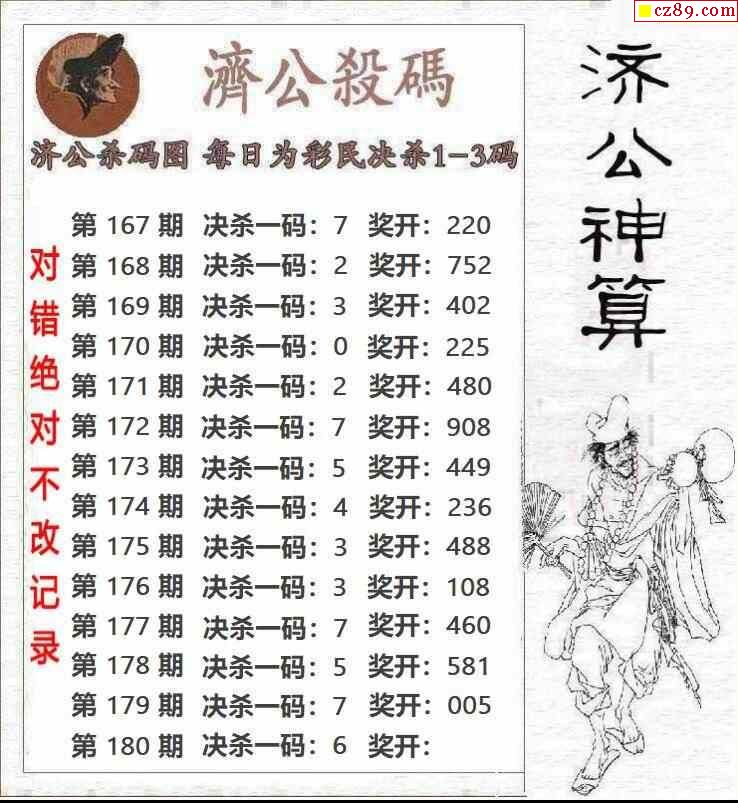 cz89.com
濟公殺碼
济公杀码图 每日为彩民决杀1-3码
第 167 期 决杀一码：7 奖开：220
第 168 期 决杀一码：2 奖开：752
第 169 期 决杀一码：3 奖开：402
第 170 期 决杀一码：0 奖开：225
第 171 期 决杀一码：2 奖开：480
第 172 期 决杀一码：7 奖开：908
第 173 期 决杀一码：5 奖开：449
第 174 期 决杀一码：4 奖开：236
第 175 期 决杀一码：3 奖开：488
第 176 期 决杀一码：3 奖开：108
第 177 期 决杀一码：7 奖开：460
第 178 期 决杀一码：5 奖开：581
第 179 期 决杀一码：7 奖开：005
第 180 期 决杀一码：6 奖开：
对错绝对不改记录
济公神算